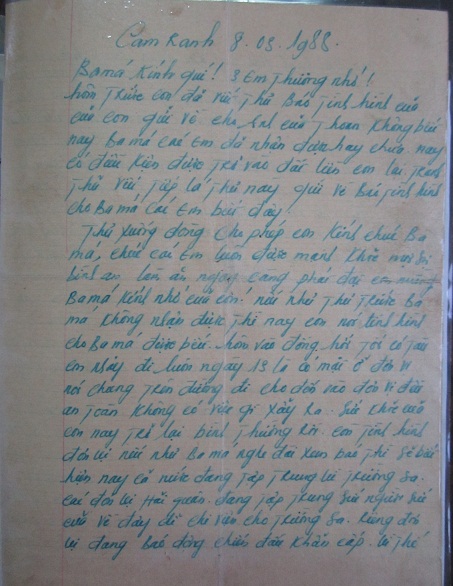 Cam Ranh 8.03.1988.
Ba má kính quí! 3 Em Thương nhớ!
hôm Trước con đã viết Thư Báo Tình hình của
của con gửi về cho anh của Thoan không biết
nay Ba má các Em đã nhận được hay chưa nay
có điều kiện được Trở vào đất liền em lại Tranh
Thủ viết Tiếp lá Thư nay gửi về Báo Tình hình
cho Ba má các Em biết đây.
Thư xuống dòng cho phép con kính chúc Ba
má, chúc các Em luôn được mạnh khỏe mọi sự
bình an làm ăn ngày càng phát đạt
Ba má kính nhớ của con. nói như Thế Trước Ba
má không nhận được Thì nay con nói tình hình
cho Ba má được biết. hôm vào đồng hới Tới có Tàu
em nhảy đi luôn ngày 13 là có mặt ở đơn vị
nói chung Trên đường đi cho đến vào đơn vị đều
an Toàn không có việc gì xảy Ra. Sức khỏe của
con nay Trở lại bình Thường Rồi. Còn Tình hình
đơn vị nếu như Ba má nghe đài xem báo Thì sẽ biết
hiện nay cả nước đang Tập Trung vì Trường Sa.
các đơn vị Hải quân đang Tập Trung sức người sức
của về đây để chi viện cho Trường Sa. Riêng đơn
vị đang Báo động chiến đấu khẩn cấp. vì Thế